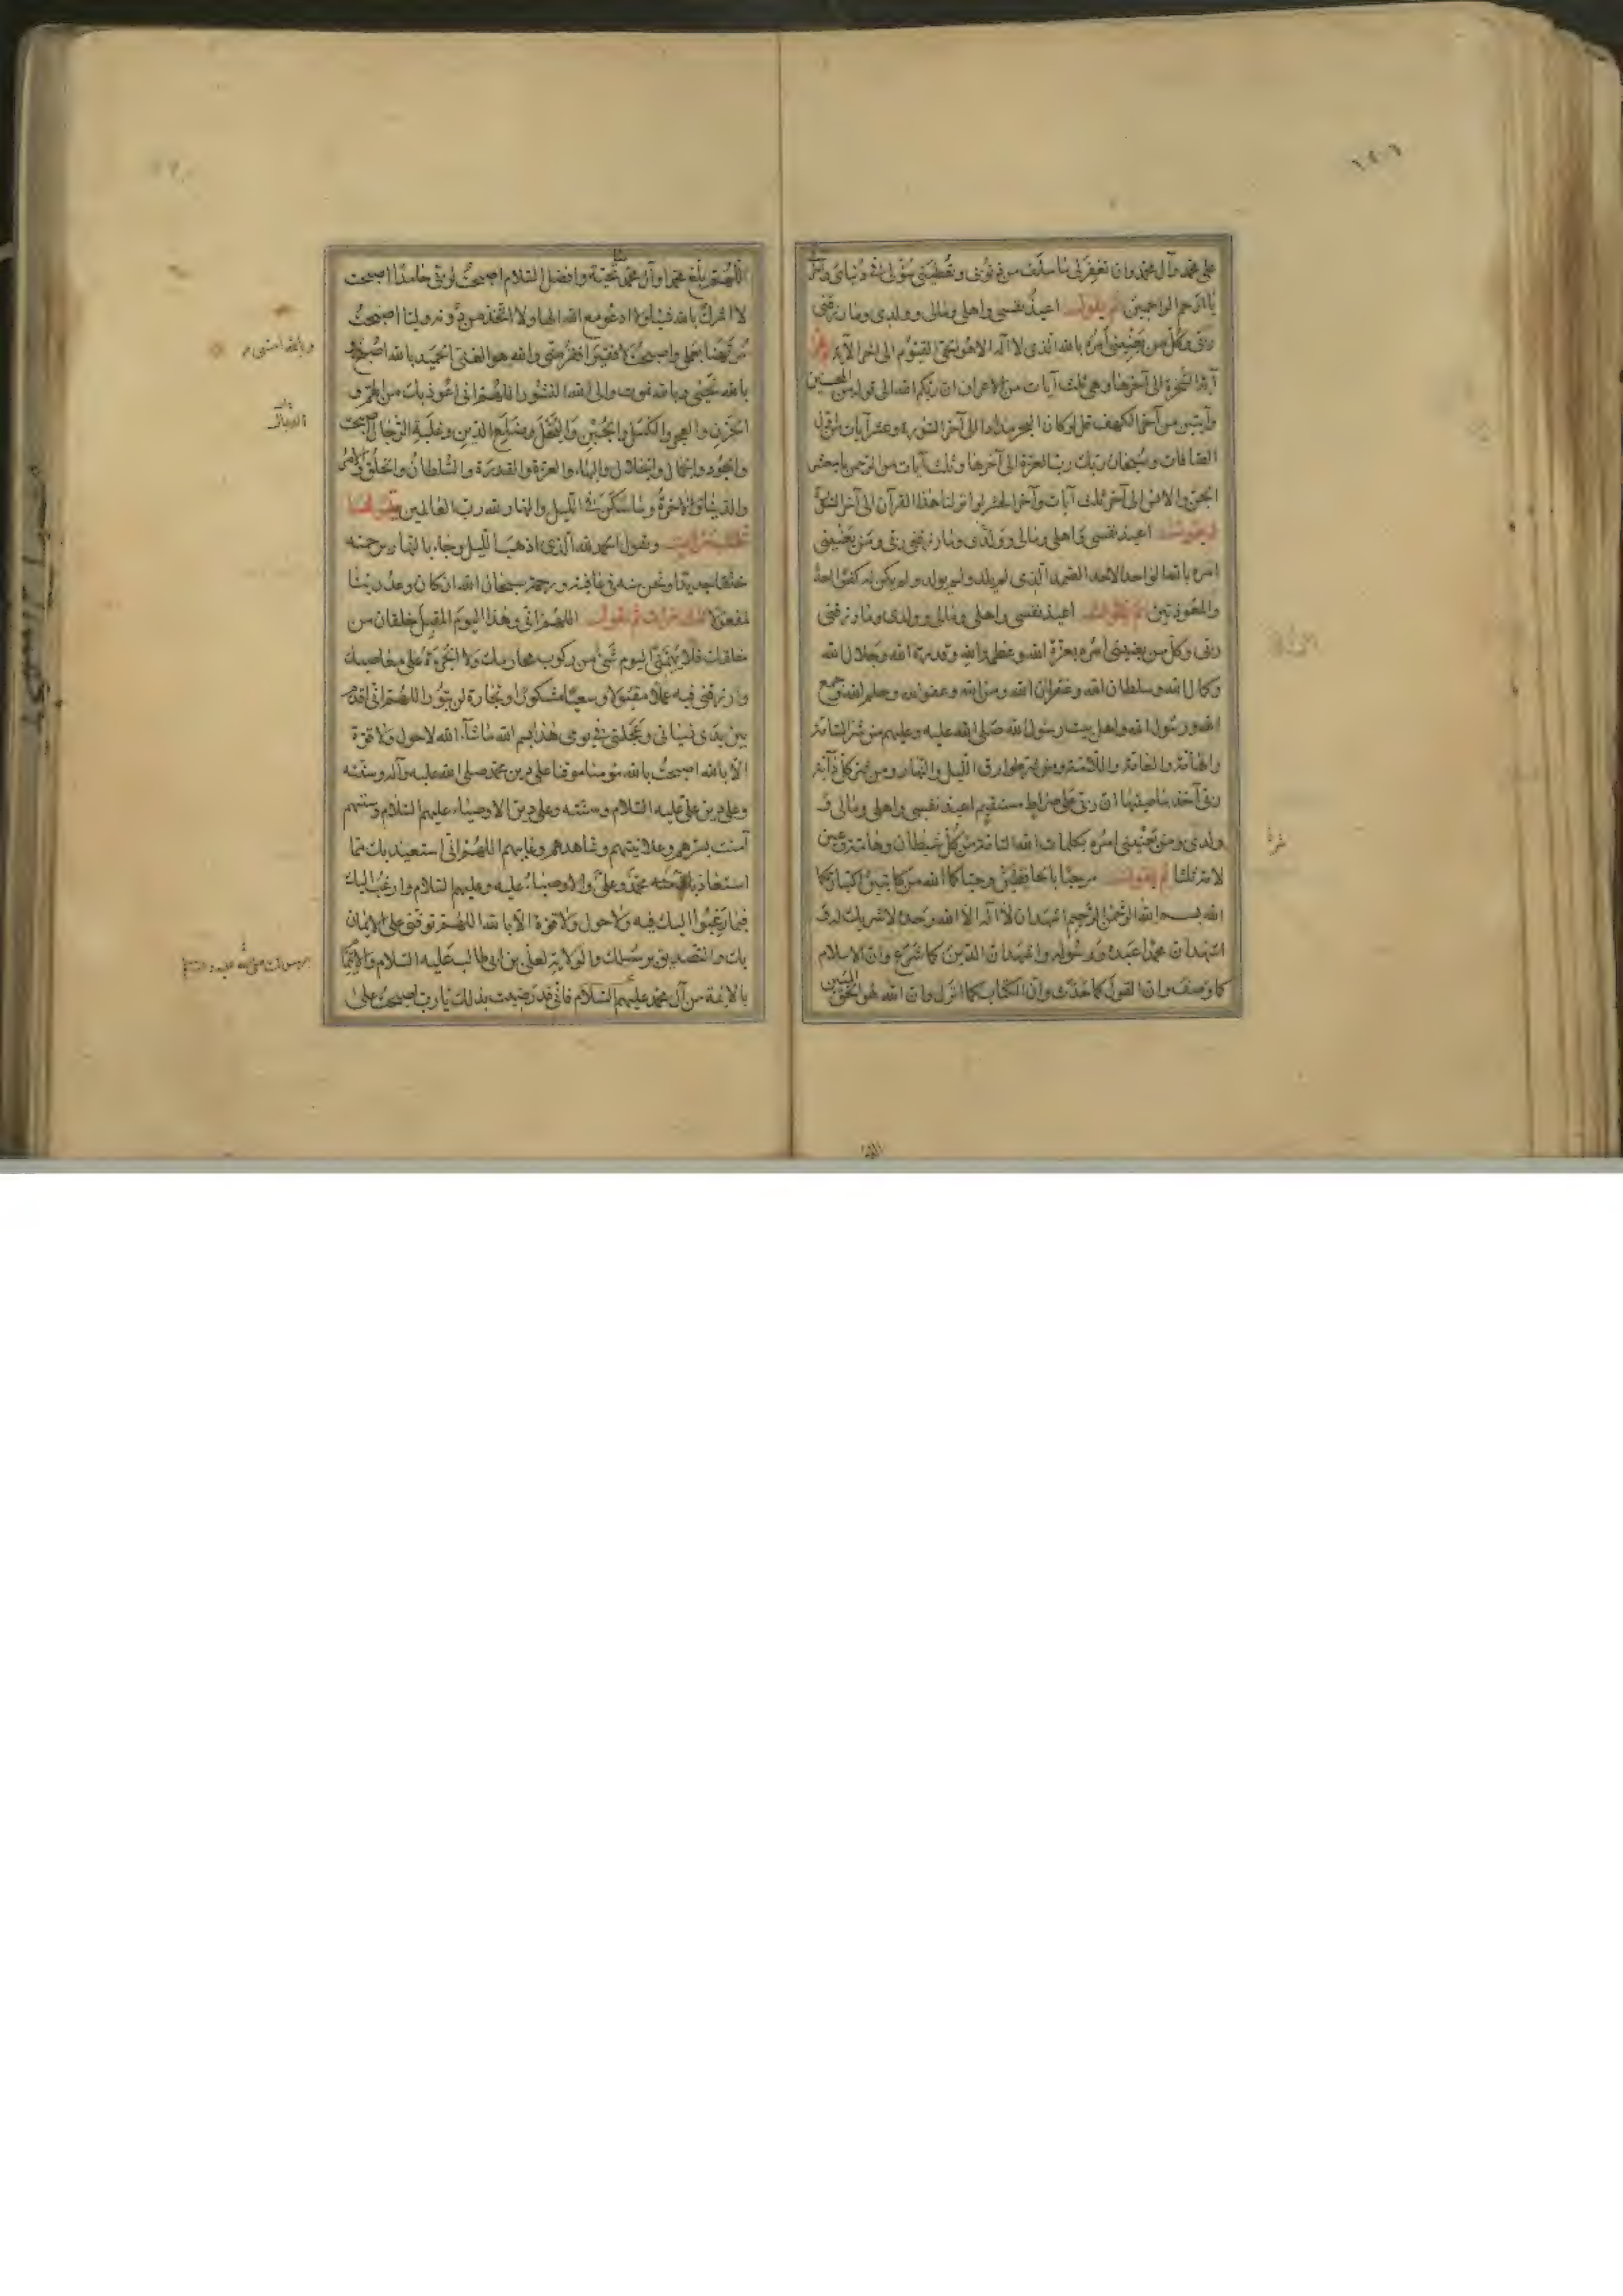 على محمد وآل محمد وان تغفر لى ما سلف من ذنوبى وتعطينى سؤلى فى دنياى وآخرتى
يا ارحم الراحمين ثم يقول اعيذ نفسى واهلى ومالى وولدى وما رزقنى
ربى وكل من يعنينى امره بالله الذى لا اله الا هو الحى القيوم الى آخر الآية
آية السخرة الى آخرها وهى ثلث آيات من الاعراف ان ربكم الله الى قوله من المحسنين
وآيتين من آخر الكهف قل لو كان البحر مدادا الى آخر السورة وعشر آيات من اول
الصافات وسبحان ربك رب العزة الى آخرها وثلث آيات من الرحمن يا معشر
الجن والانس الى آخر ثلث آيات وآخر الحشر لو انزلنا هذا القرآن الى آخر السورة
ثم يقول اعيذ نفسى واهلى ومالى وولدى وما رزقنى ربى ومن يعنينى
امره بالله الواحد الاحد الصمد الذى لم يلد ولم يولد ولم يكن له كفوا احد
والمعوذتين ثم يقول اعيذ نفسى واهلى ومالى وولدى وما رزقنى
ربى وكل من يعنينى امره بعزة الله وعظمة الله وقدرة الله وجلال الله
وكمال الله وسلطان الله وغفران الله ومن الله وعفو الله وحلم الله وجمع
الله ورسول الله واهل بيت رسول الله صلى الله عليه وعليهم من شر السامة
والهامة والعامة واللامة ومن شر طوارق الليل والنهار ومن شر كل دابة
ربى آخذ بناصيتها ان ربى على صراط مستقيم اعيذ نفسى واهلى ومالى و
ولدى ومن يعنينى امره بكلمات الله التامة من كل شيطان وهامة وعين
لامة ثلثا ثم يقول مرحبا بالحافظين وحياكما الله من كاتبين اكتبا رحمكما
الله بسم الله الرحمن الرحيم اشهد ان لا اله الا الله وحده لا شريك له و
اشهد ان محمدا عبده ورسوله واشهد ان الدين كما شرع وان الاسلام
كما وصف وان القول كما حدث وان الكتاب كما انزل وان الله هو الحق المبين
اللهم بلغ محمدا وآل محمد تحية وافضل السلام اصبحت لربى حامدا اصبحت
لا اشرك بالله شيئا ولا ادعو مع الله الها ولا اتخذ من دونه وليا اصبحت
مرتهنا بعملى واصبحت لا فقير افقر منى والله هو الغنى الحميد بالله اصبح و
بالله نحيى وبالله نموت والى الله النشور اللهم انى اعوذ بك من الهم و
الحزن والعجز والكسل والجبن والبخل وضلع الدين وغلبة الرجال اصبحت
والجود والجمال والجلال والبهاء والعزة والقدرة والسلطان والخلق والامر
والدنيا والآخرة وما سكن فى الليل والنهار لله رب العالمين
ثلث مرات ويقول الحمد لله الذى اذهب الليل وجاء بالنهار برحمته
خلقا جديدا ونحن منه فى عافية ورحمة سبحان الله ان كان وعد ربنا
لمفعولا ثلث مرات ثم يقول اللهم انى وهذا اليوم المقبل خلقان من
خلقك فلا يهمنى اليوم شىء من ركوب محارمك ولا الجرءة على معاصيك
وارزقنى فيه عملا مقبولا وسعيا مشكورا وتجارة لن تبور اللهم انى اقدم
بين يدى نسيانى وعجلتى فى يومى هذا بسم الله ما شاء الله لا حول ولا قوة
الا بالله اصبحت بالله مؤمنا موقنا على دين محمد صلى الله عليه وآله وسنته
وعلى دين على عليه السلام وسنته وعلى دين الاوصياء عليهم السلام وسنتهم
آمنت بسرهم وعلانيتهم وشاهدهم وغايبهم اللهم انى استعيذ بك مما
استعاذ منه محمد وعلى والاوصياء عليه وعليهم السلام وارغب اليك
فيما رغبوا اليك فيه ولا حول ولا قوة الا بالله اللهم توفنى على الايمان
بك والتصديق برسلك والولاية لعلى بن ابى طالب عليه السلام والايتمام
بالائمة من آل محمد عليهم السلام فانى قد رضيت بذلك يا رب اصبحت على